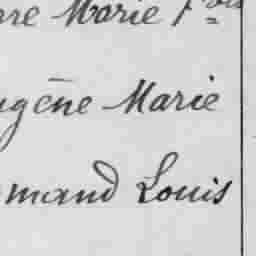 re Marie Fois
ugène Marie
mand Louis